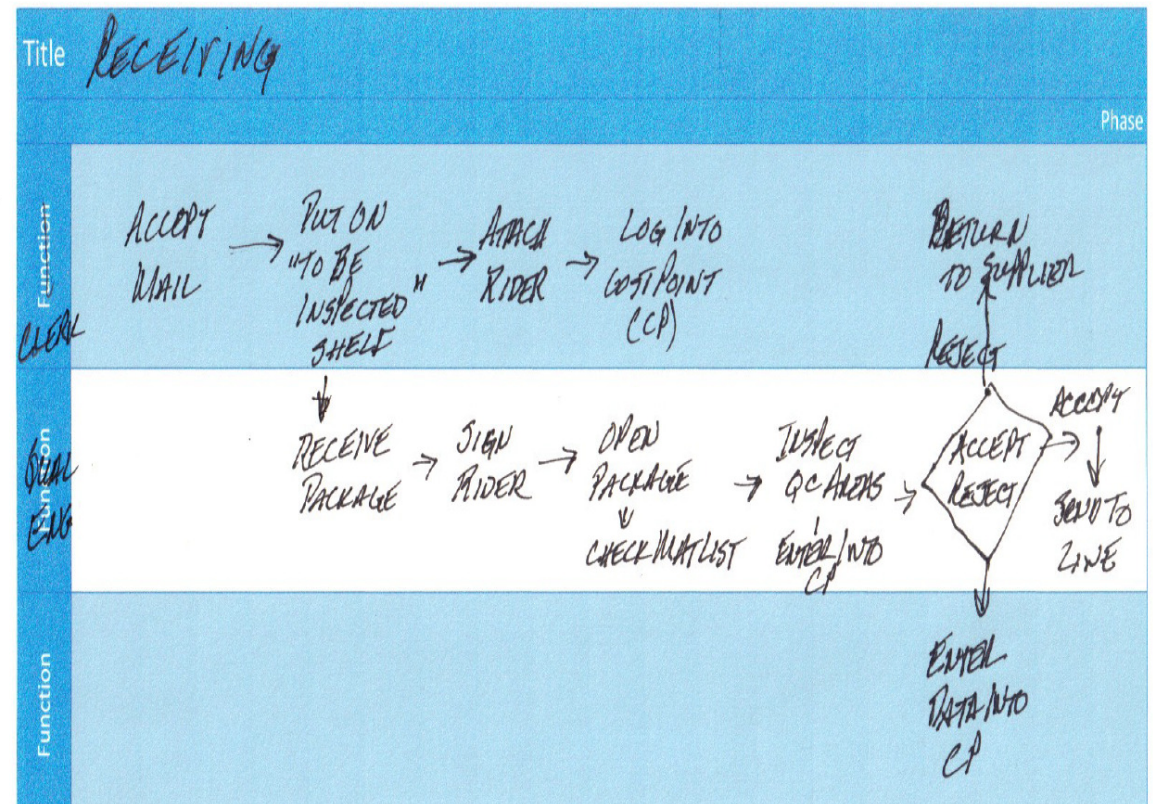 Title RECEIVING
Phase
Function
CLERK
ACCEPT
MAIL
PUT ON
"TO BE
INSPECTED"
SHELF
ATTACH
RIDER
LOG INTO
COSTPOINT
(CP)
RETURN
TO SUPPLIER
REJECT
Function
QUAL
ENG
RECEIVE
PACKAGE
SIGN
RIDER
OPEN
PACKAGE
CHECK MATLIST
INSPECT
QC AREAS
ENTER INTO
CP
ACCEPT
REJECT
ACCEPT
SEND TO
LINE
Function
ENTER
DATA INTO
CP